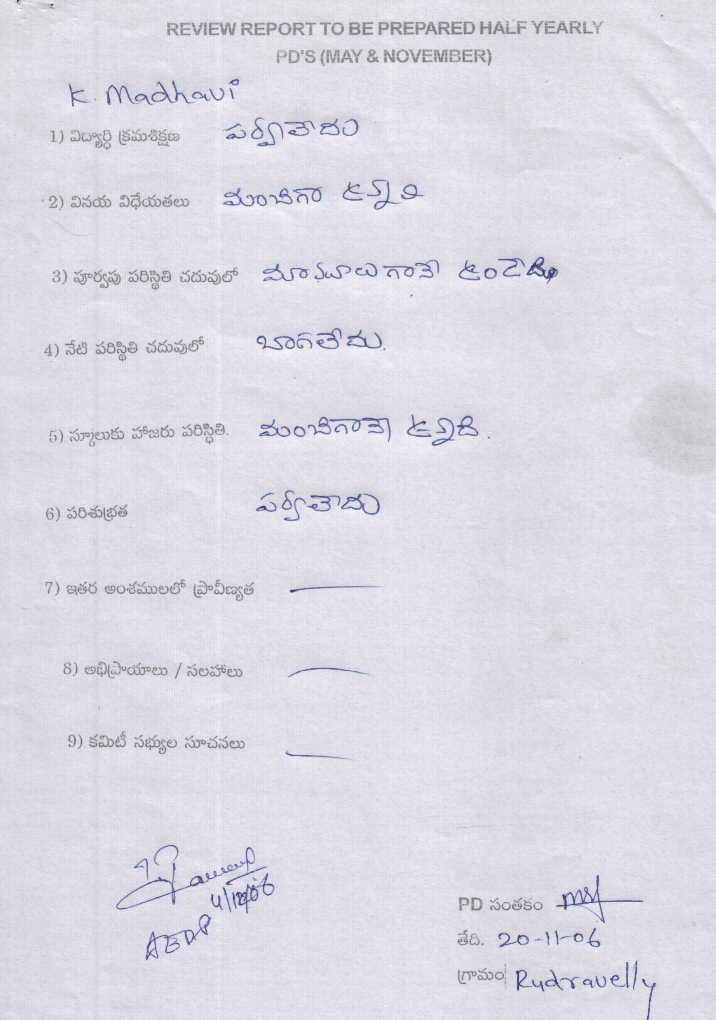 REVIEW REPORT TO BE PREPARED HALF YEARLY
PD'S (MAY & NOVEMBER)
K. Madhavi
1) విద్యార్ధి క్రమశిక్షణ పర్వాలేదు
2) వినయ విధేయతలు మంచిగా ఉన్నవి
3) పూర్వపు పరిస్థితి చదువులో మామూలుగానే ఉండెను
4) నేటి పరిస్థితి చదువులో బాగలేదు.
5) స్కూలుకు హాజరు పరిస్థితి. మంచిగానే ఉన్నది.
6) పరిశుభ్రత పర్వాలేదు
7) ఇతర అంశములలో ప్రావీణ్యత
8) అభిప్రాయాలు / సలహాలు
9) కమిటీ సభ్యుల సూచనలు
4/12/06
PD సంతకం
తేది. 20-11-06
గ్రామం Rudravelly